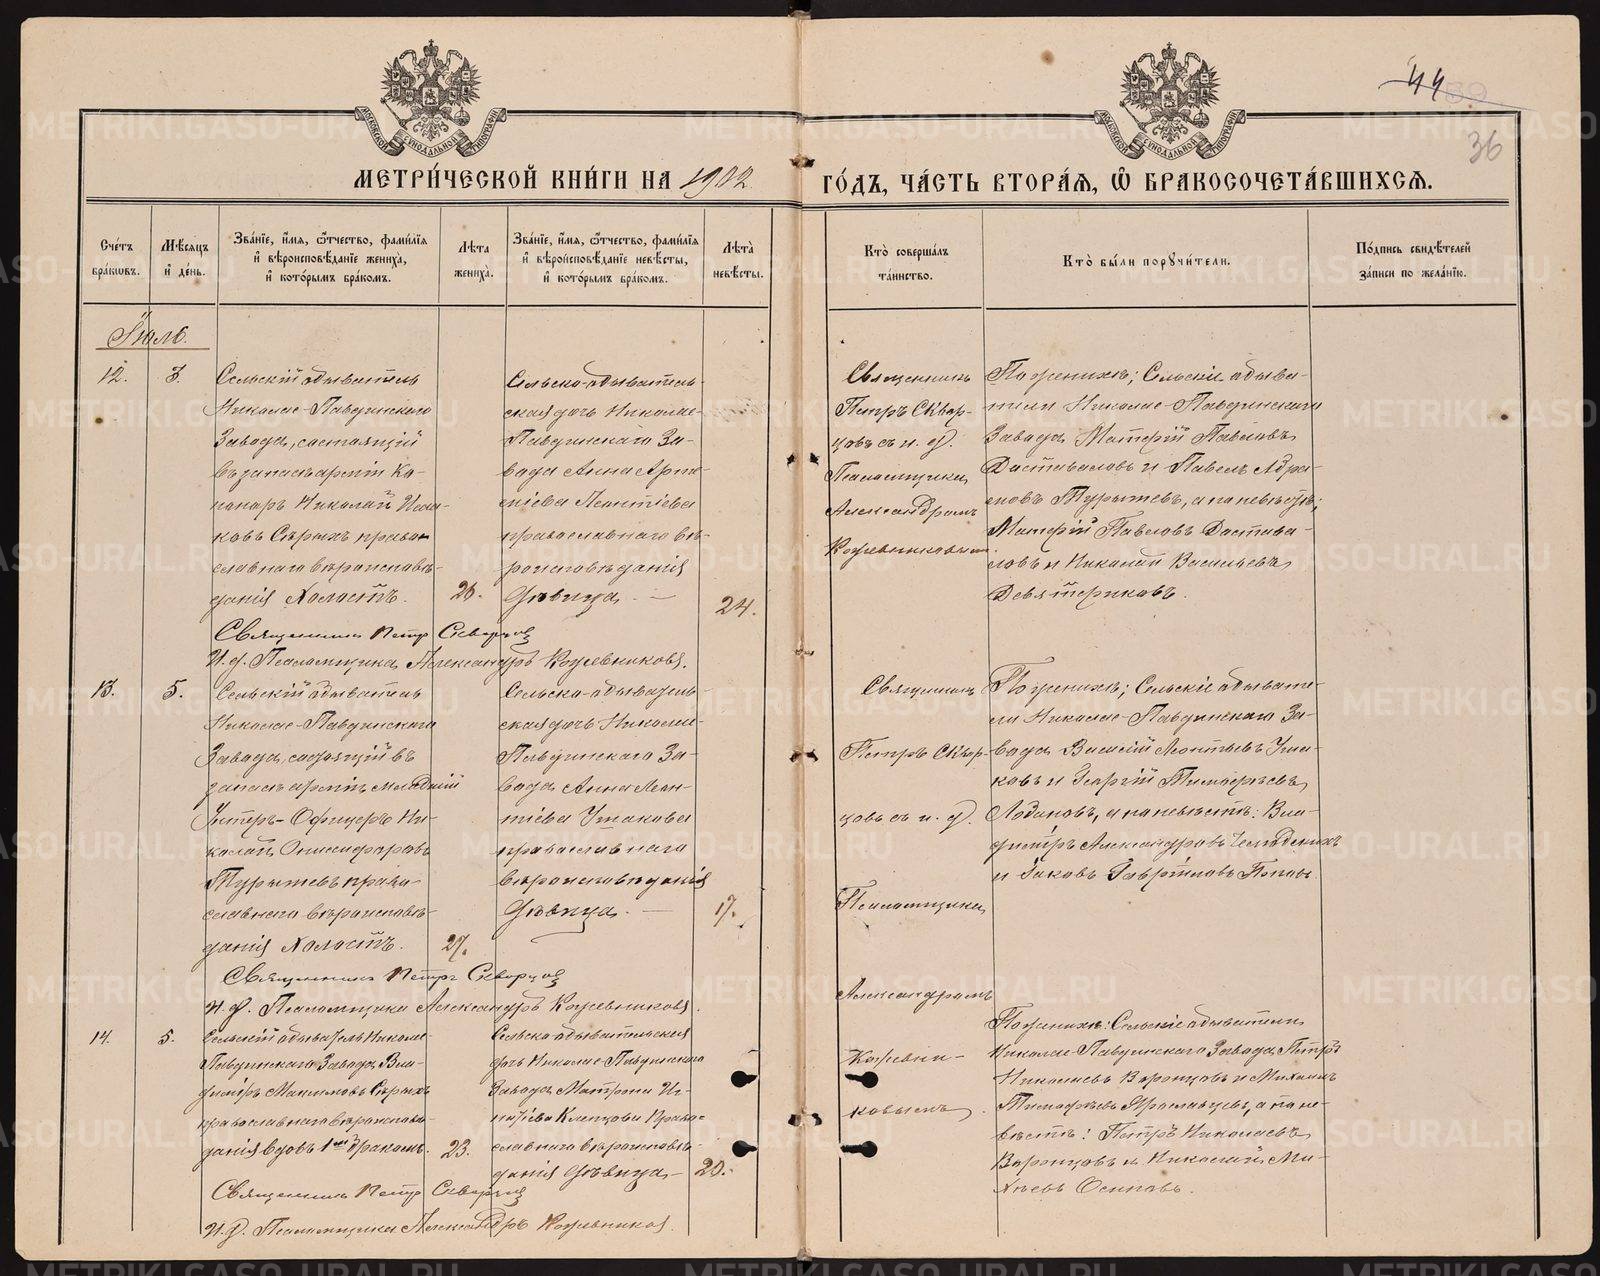 44 39
36
МЕТРИ́ЧЕСКОЙ КНИ́ГИ НА 1902 ГО́ДЪ, ЧА́СТЬ ВТОРА́Я, Ѽ БРАКОСОЧЕТА́ВШИХСЯ.
Сче́тъ бра́кѡвъ.
Мѣ́сяцъ и҆ де́нь.
Зва́нїе, и҆́мя, ѻ҆́тчество, фамѝлїя
и҆ вѣроисповѣ́данїе жениха̀,
и҆ кото́рымъ бра́комъ.
Лѣ́та жениха̀.
Зва́нїе, и҆́мя, ѻ҆́тчество, фамѝлїя
и҆ вѣроисповѣ́данїе невѣ́сты,
и҆ кото́рымъ бра́комъ.
Лѣ́та невѣ́сты.
Кто̀ соверша́лъ та́инство.
Кто̀ бы́ли порꙋчи́тели.
По́дпись свидѣ́телей за́писи по жела́нїю.
Іюль.
12.
3.
Сельскій обыватель
Николае-Павдинскаго
Завода, состоящій
въ запасѣ арміи Ка-
нониръ Николай Исаа-
ковъ Сѣрыхъ право-
славнаго вѣроисповѣ-
данія Холостъ.
26.
Сельско-обыватель-
ская дочь Николае-
Павдинскаго За-
вода Анна Арте-
міева Леонтіева
православнаго вѣ-
роисповѣданія
Дѣвица. —
24.
Священникъ
Петръ Сквор-
цовъ съ и. д.
Псаломщика
Александромъ
Кожевниковымъ.
По женихѣ; Сельскіе обыва-
тели Николае-Павдинскаго
Завода Матфій Павловъ
Доставаловъ и Павелъ Адрі-
ановъ Турышевъ, а по невѣстѣ;
Матфій Павловъ Достава-
ловъ и Николай Васильевъ
Девятериковъ.
Священникъ Петръ Скворцов
И. д. Псаломщика Александръ Кожевниковъ.
13.
5.
Сельскій обыватель
Николае-Павдинскаго
Завода, состоящій въ
запасѣ арміи младшій
Унтеръ-Офицеръ Ни-
колай Онисифоровъ
Турышевъ право-
славнаго вѣроисповѣ-
данія Холостъ.
27.
Сельско-обыватель-
ская дочь Николае-
Павдинскаго За-
вода Анна Леон-
тіева Ушакова
православнаго
вѣроисповѣданія
Дѣвица. —
17.
Священникъ
Петръ Сквор-
цовъ съ и. д.
Псаломщика
Александромъ
Кожевни-
ковымъ.
По женихѣ; Сельскіе обывате-
ли Николае-Павдинскаго За-
вода Василій Леонтьевъ Уша-
ковъ и Георгій Тимофѣевъ
Лобановъ, а по невѣстѣ: Вла-
диміръ Александровъ
и Іаковъ Гавріиловъ Поповъ.
Священникъ Петръ Скворцов
И. д. Псаломщика Александръ Кожевниковъ.
14.
5.
Сельскій обыватель Николае-
Павдинскаго Завода, Вла-
диміръ Максимовъ Сѣрыхъ
православнаго вѣроисповѣ-
данія вдовъ 1мъ бракомъ.
23.
Сельско обывательская
дочь Николае-Павдинскаго
Завода Матрона Иг-
натіева Клепцова Право-
славнаго вѣроисповѣ-
данія Дѣвица —
20.
По женихѣ: Сельскіе обыватели
Николае-Павдинскаго Завода Петръ
Николаевъ Воронцовъ и Михаилъ
Тимофѣевъ Ярославцевъ, а по не-
вѣстѣ: Петръ Николаевъ
Воронцовъ и Николай Ми-
хѣевъ Осиповъ.
Священникъ Петръ Скворцов
И. д. Псаломщика Александръ Кожевников.